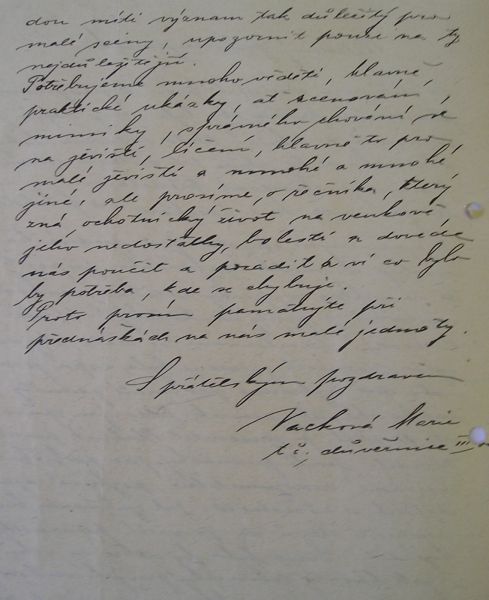 dou míti význam tak důležitý pro
malé scény, upozornit pouze na ty
nejdůležitější.
Potřebujeme mnoho věděti, hlavně
praktické ukázky, ať scenování,
mimiky, správného chování se
na jěvišti, líčení, hlavně to pro
malé jěviště a mnohé a mnohé
jiné, ale prosíme, o řečníka, který
zná, ochotnický život na venkově,
jeho nedostatky, bolesti a dovede
nás poučit a poradit a ví co bylo
by potřeba, kde se chybuje.
Proto prosím pamatujte při
přednáškách na nás malé jednoty.
S přátelským pozdravem
Vacková Marie
t.č. důvěrnice III